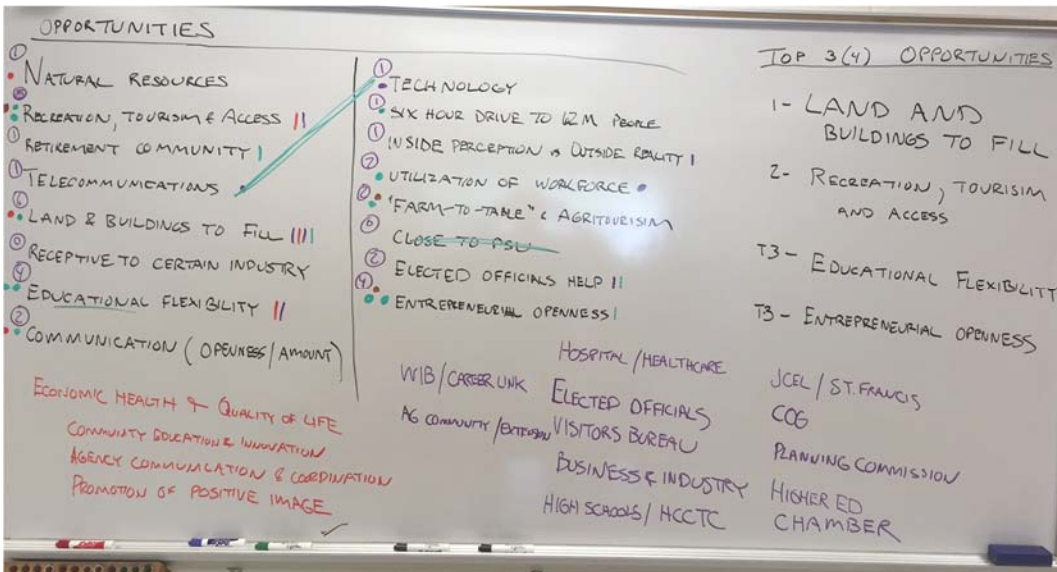 OPPORTUNITIES
① NATURAL RESOURCES
RECREATION, TOURISM & ACCESS ||
① RETIREMENT COMMUNITY |
① TELECOMMUNICATIONS
⑥ LAND & BUILDINGS TO FILL ||||
⓪ RECEPTIVE TO CERTAIN INDUSTRY
④ EDUCATIONAL FLEXIBILITY ||
② COMMUNICATION (OPENNESS/AMOUNT)
① TECHNOLOGY
① SIX HOUR DRIVE TO 62M PEOPLE
① INSIDE PERCEPTION vs OUTSIDE REALITY |
② UTILIZATION OF WORKFORCE
② "FARM-TO-TABLE" & AGRITOURISIM
⓪ CLOSE TO PSU
② ELECTED OFFICIALS HELP ||
④ ENTREPRENEURIAL OPENNESS |
TOP 3(4) OPPORTUNITIES
1- LAND AND
BUILDINGS TO FILL
2- RECREATION, TOURISIM
AND ACCESS
T3- EDUCATIONAL FLEXIBILITY
T3- ENTREPRENEURIAL OPENNESS
ECONOMIC HEALTH & QUALITY OF LIFE
COMMUNITY EDUCATION & INNOVATION
AGENCY COMMUNICATION & COORDINATION
PROMOTION OF POSITIVE IMAGE
WIB/CAREER LINK
AG COMMUNITY/EXTENSION
HOSPITAL/HEALTHCARE
ELECTED OFFICIALS
VISITORS BUREAU
BUSINESS & INDUSTRY
HIGH SCHOOLS/HCCTC
JCEL/ST. FRANCIS
COG
PLANNING COMMISSION
HIGHER ED
CHAMBER